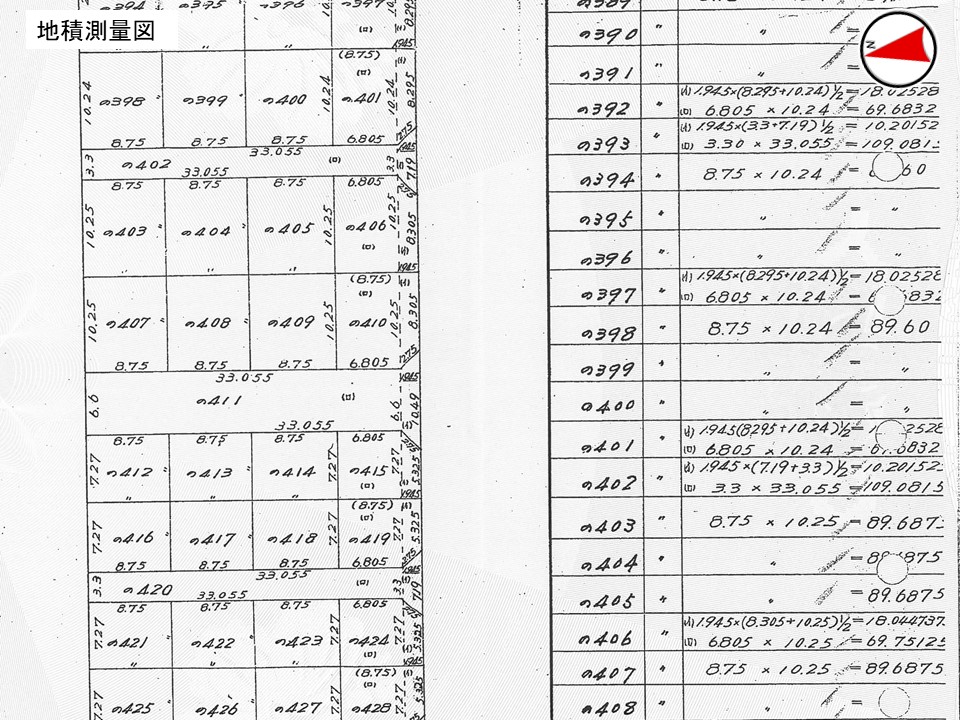 地積測量図
N
10.24 の398 〃 の399 〃 の400 10.24 の401 10.24 8.295
(8.75)
(ロ)
8.75 8.75 8.75 6.805
33.055
3.3 の402 (ロ) 3.3 7.19
33.055
8.75 8.75 8.75 6.805
10.25 の403 〃 の404 〃 の405 10.25 の406 10.25 8.305
(ロ)
〃 〃 1.945
(8.75)
(ロ)
10.25 の407 〃 の408 〃 の409 10.25 の410 10.25 8.305
8.75 8.75 8.75 6.805
33.055
6.6 の411 (ロ) 6.6 10.49
33.055
8.75 8.75 8.75 6.805
7.27 の412 〃 の413 〃 の414 7.27 の415 7.27 5.325
(ロ)
〃 〃 1.945
(8.75)
(ロ)
7.27 の416 〃 の417 〃 の418 7.27 の419 7.27 5.325
8.75 8.75 8.75 6.805
33.055
3.3 の420 (ロ) 3.3 7.19
33.055
8.75 8.75 8.75 6.805
7.27 の421 〃 の422 〃 の423 7.27 の424 7.27 5.325
(ロ)
〃 〃 1.945
(8.75)
(ロ)
7.27 の425 〃 の426 の427 7.27 の428 7.27 5.325
の389
の390 〃 〃 =
の391 〃 =
の392 〃 (イ) 1.945×(8.295+10.24)½=18.02528
(ロ) 6.805 × 10.24 = 69.6832
の393 〃 (イ) 1.945×(3.3+7.19)½ = 10.20152
(ロ) 3.30 × 33.055 = 109.081
の394 〃 8.75 × 10.24 = 60
の395 〃 〃 = 〃
の396 〃 〃 = 〃
の397 〃 (イ) 1.945×(8.295+10.24)½=18.02528
(ロ) 6.805 × 10.24 = 6 6832
の398 〃 8.75 × 10.24 = 89.60
の399 〃 〃 = 〃
の400 〃 〃 = 〃
の401 〃 (イ) 1.945(8.295+10.24)½= 1 2528
(ロ) 6.805 × 10.24 = 6832
の402 〃 (イ) 1.945×(7.19+3.3)½=10.20152
(ロ) 3.3 × 33.055 =109.0815
の403 〃 8.75 × 10.25 = 89.687
の404 〃 〃 = 89 875
の405 〃 〃 = 89.6875
の406 〃 (イ) 1.945×(8.305+10.25)½=18.044737
(ロ) 6.805 × 10.25 = 69.75125
の407 〃 8.75 × 10.25 =89.6875
の408 〃 〃 =